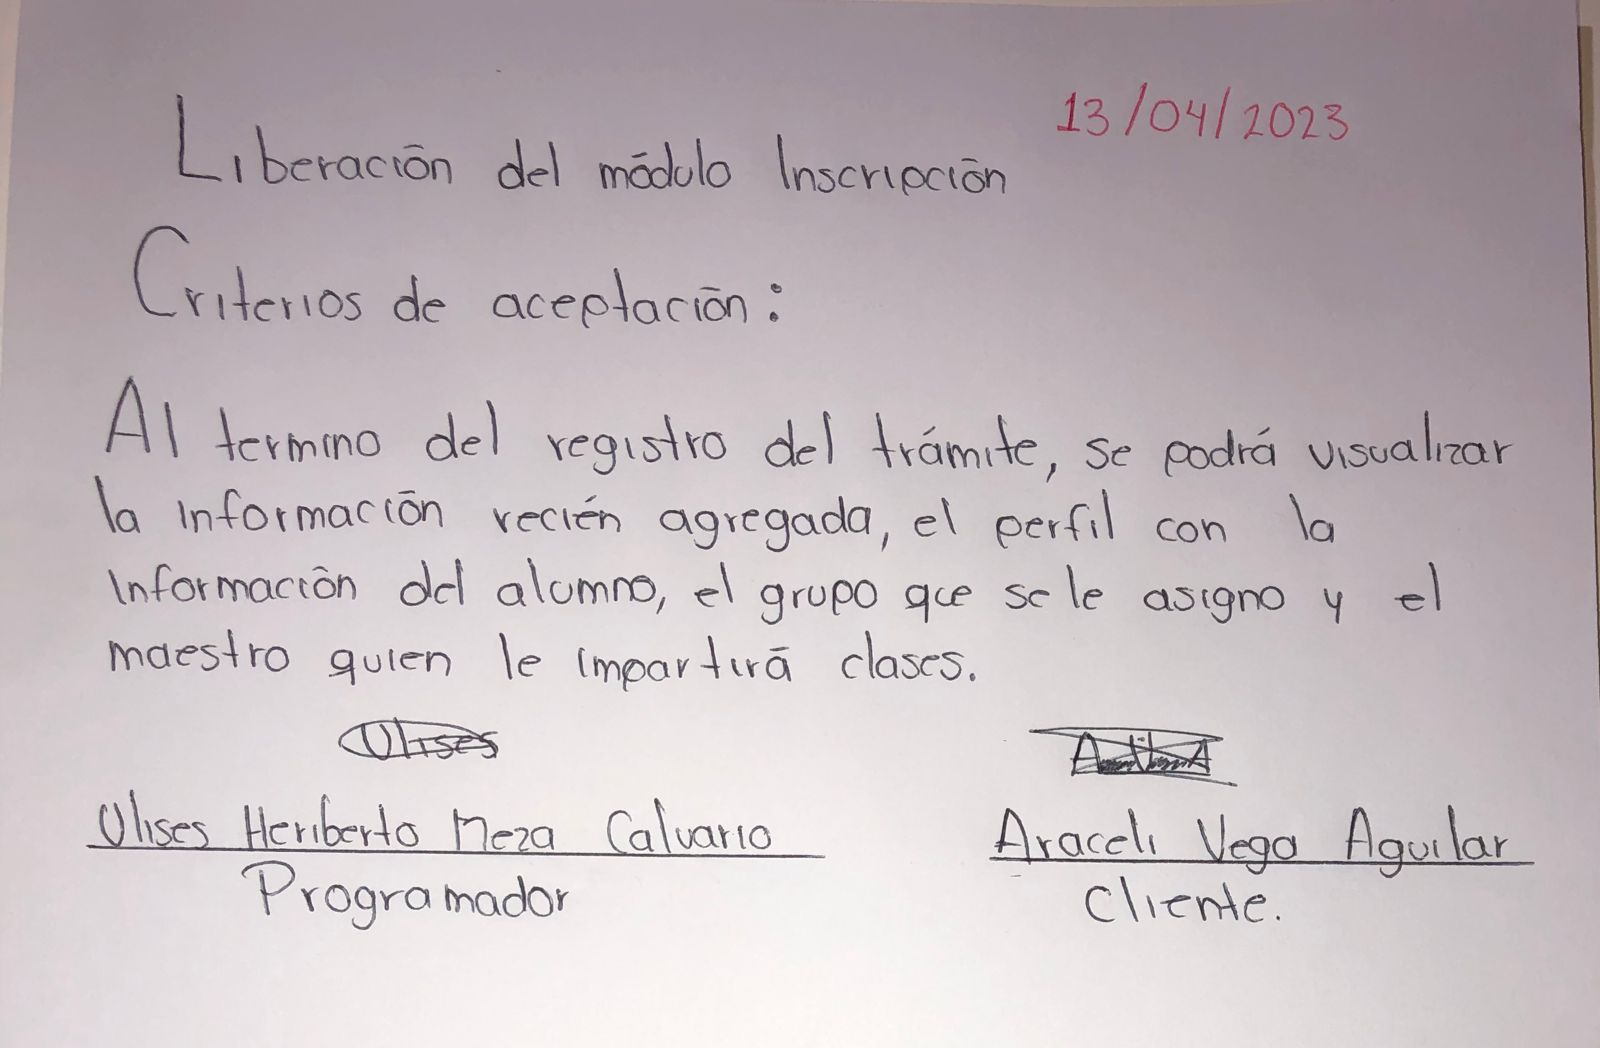 13/04/2023
Liberación del módulo Inscripción
Criterios de aceptación:
Al termino del registro del trámite, se podrá visualizar
la información recién agregada, el perfil con la
información del alumno, el grupo que se le asigno y el
maestro quien le impartirá clases.
Ulises
Ulises Heriberto Meza Calvario
Araceli Vega Aguilar
Programador
Cliente.